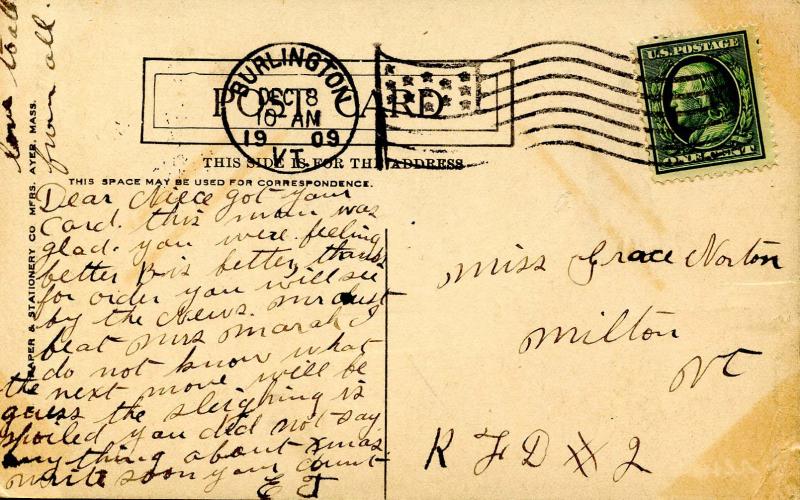 U.S. POSTAGE
ONE CENT
BURLINGTON
DEC 8
10 AM
1909
VT.
POST CARD
THIS SIDE IS FOR THE ADDRESS
THIS SPACE MAY BE USED FOR CORRESPONDENCE.
PAPER & STATIONERY CO MFRS. AYER, MASS.
Dear Niece got your
Card. this morn was
glad. you were feeling
better B is better, thanks
for order you will see
by the News. Mr
beat Mrs Marah I
do not know what
the next move will be
guess the sleighing is
spoiled you did not say
anything about Xmas
write soon your Aunt
E J
love to all
from all.
Miss Grace Norton
Milton
Vt
R F D # 2